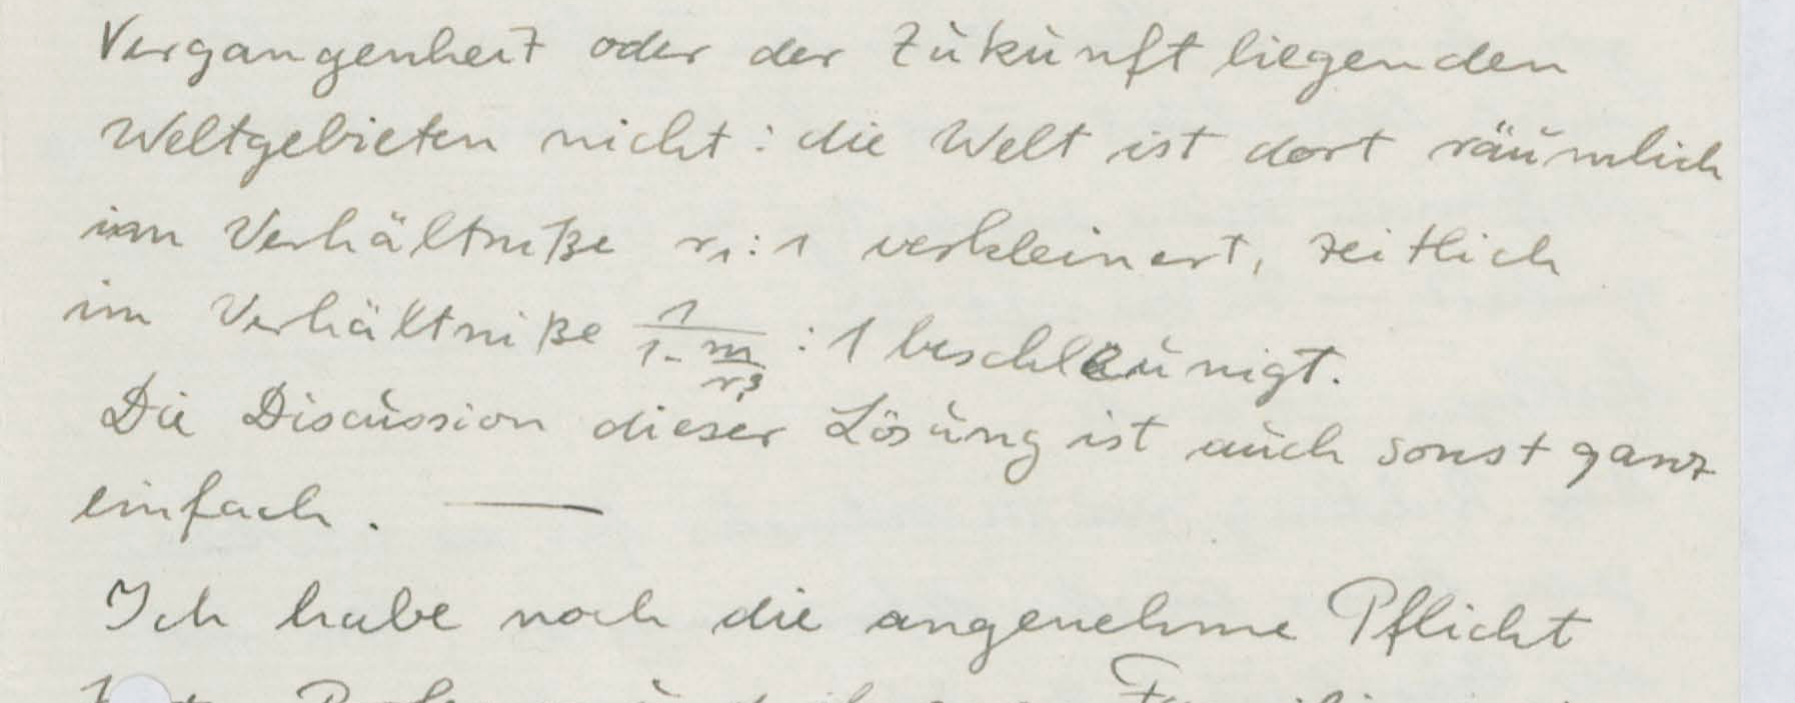 Vergangenheit oder der Zukunft liegenden
Weltgebieten nicht: die Welt ist dort räumlich
im Verhältniße r₁:1 verkleinert, zeitlich
im Verhältniße 1/(1-m/r₁³) : 1 beschleunigt.
Die Discussion dieser Lösung ist auch sonst ganz
einfach. —
Ich habe noch die angenehme Pflicht